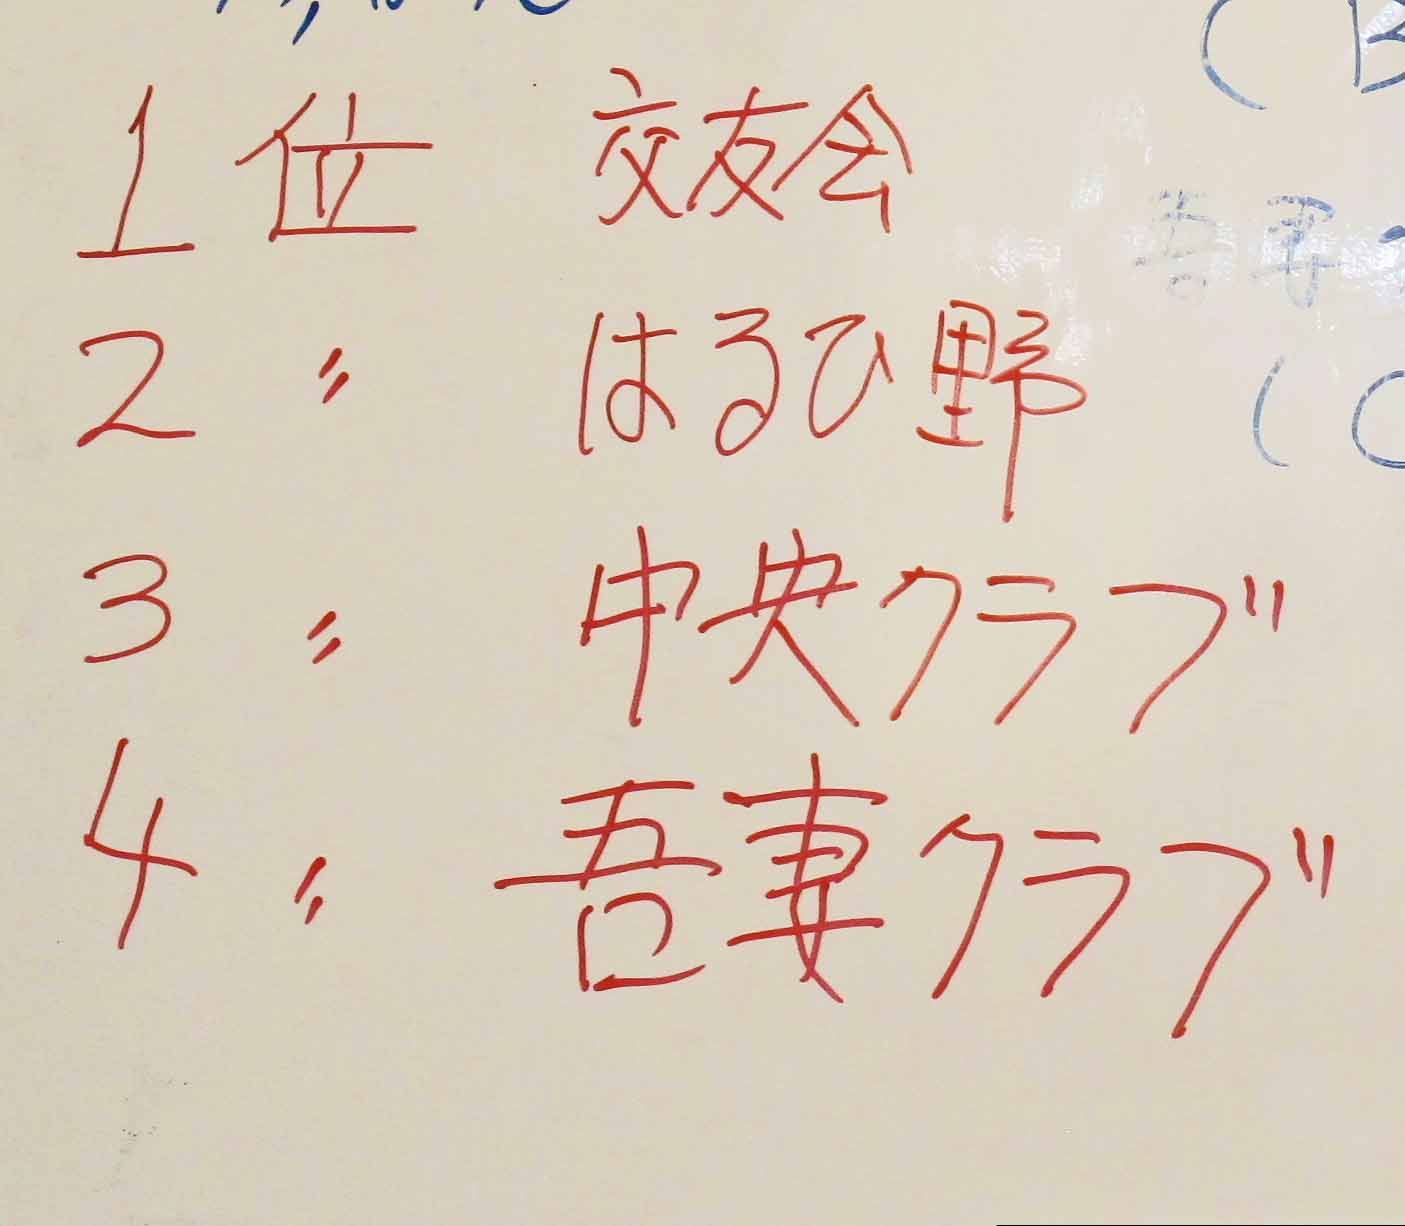 1位 交友会
吾妻
2 〃 はるひ野
3 〃 中央クラブ
4 〃 吾妻クラブ